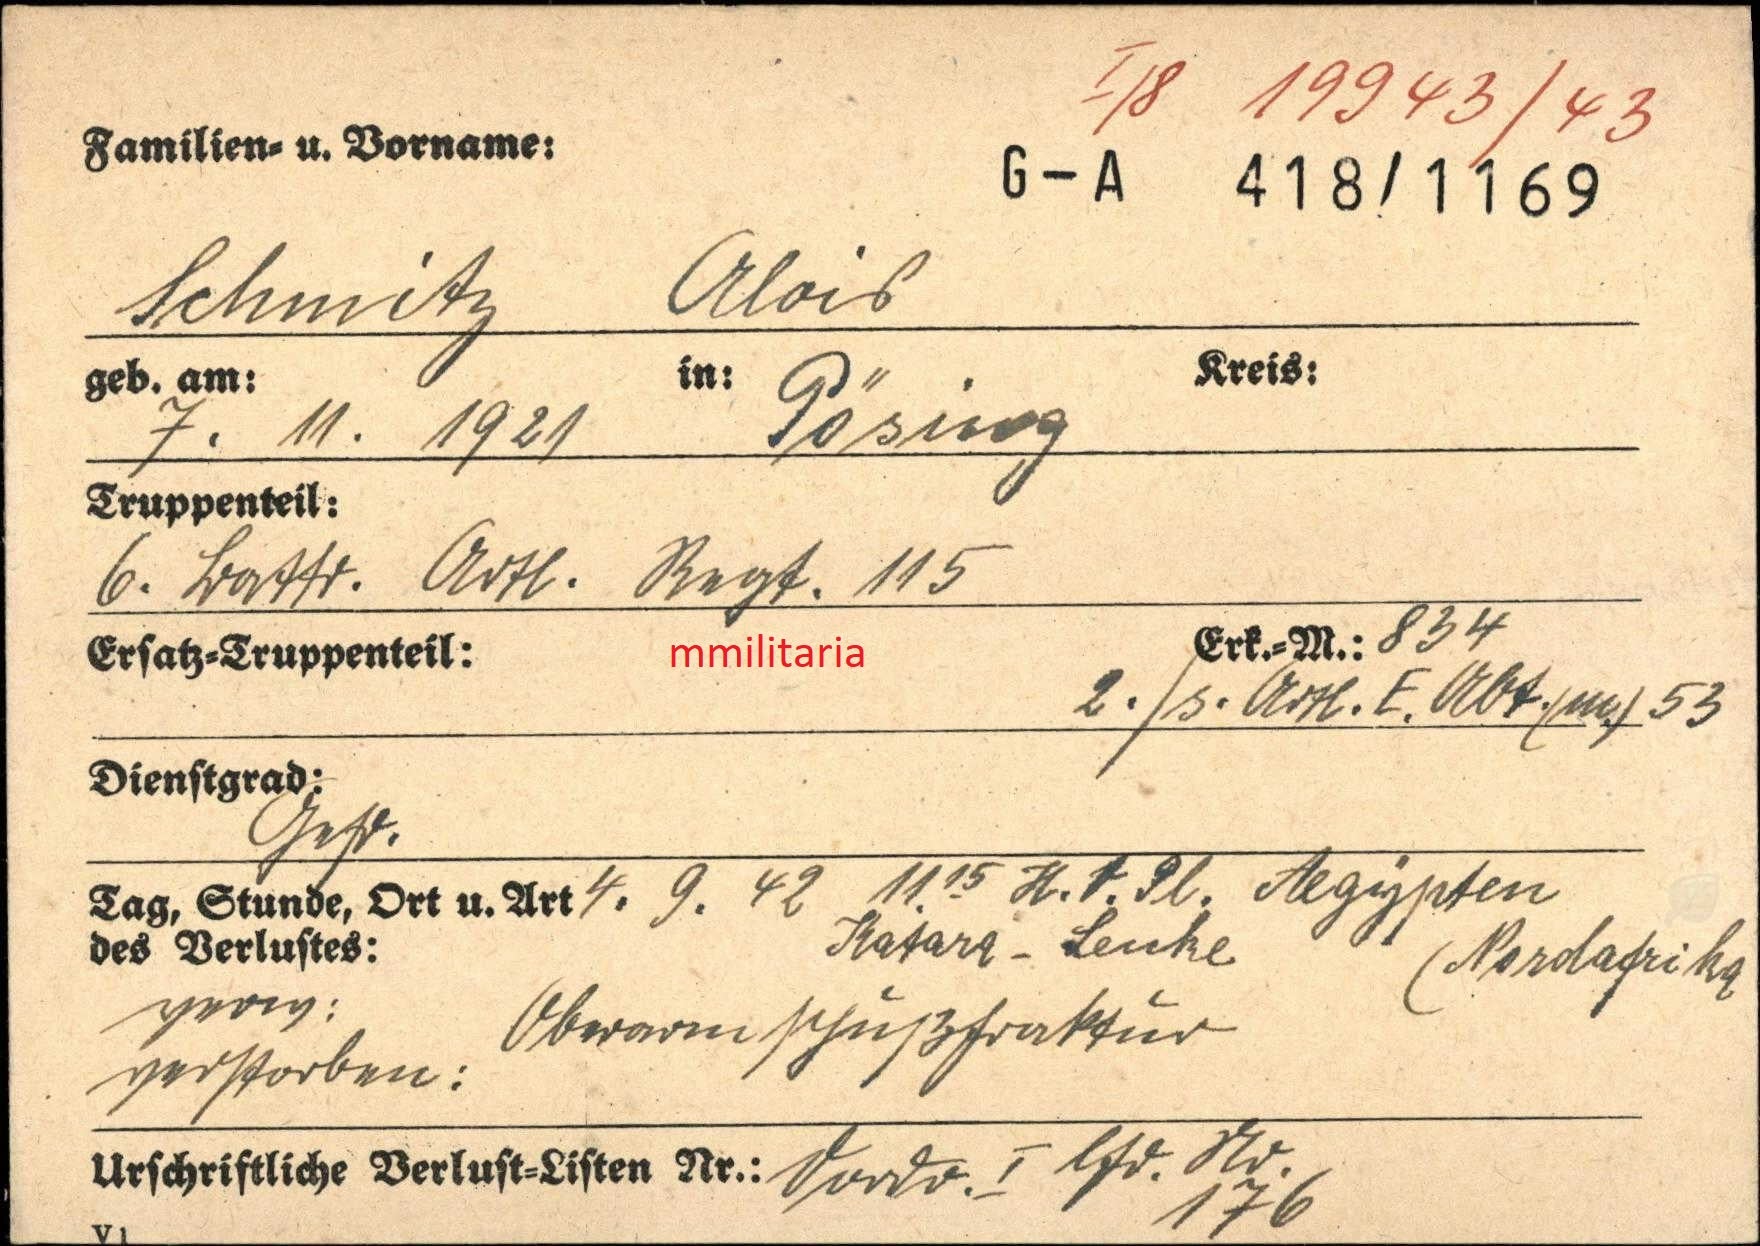 I/8 19943/43
Familien- u. Vorname:
G-A 418/1169
Schmitz Alois
geb. am: in: Kreis:
7. 11. 1921 Pösing
Truppenteil:
6. Battr. Artl. Regt. 115
Ersatz-Truppenteil: mmilitaria Erk.-M.: 834
2./s. Artl. E. Abt. (m.) 53
Dienstgrad:
Gefr.
Tag, Stunde, Ort u. Art 4. 9. 42 11.15 H. V. Pl. Aegÿpten
des Verlustes: Katara - Senke (Nordafrika
verw: Oberarmschußfraktur
verstorben:
Urschriftliche Verlust-Listen Nr.: I lfd. Nr.
176
V 1